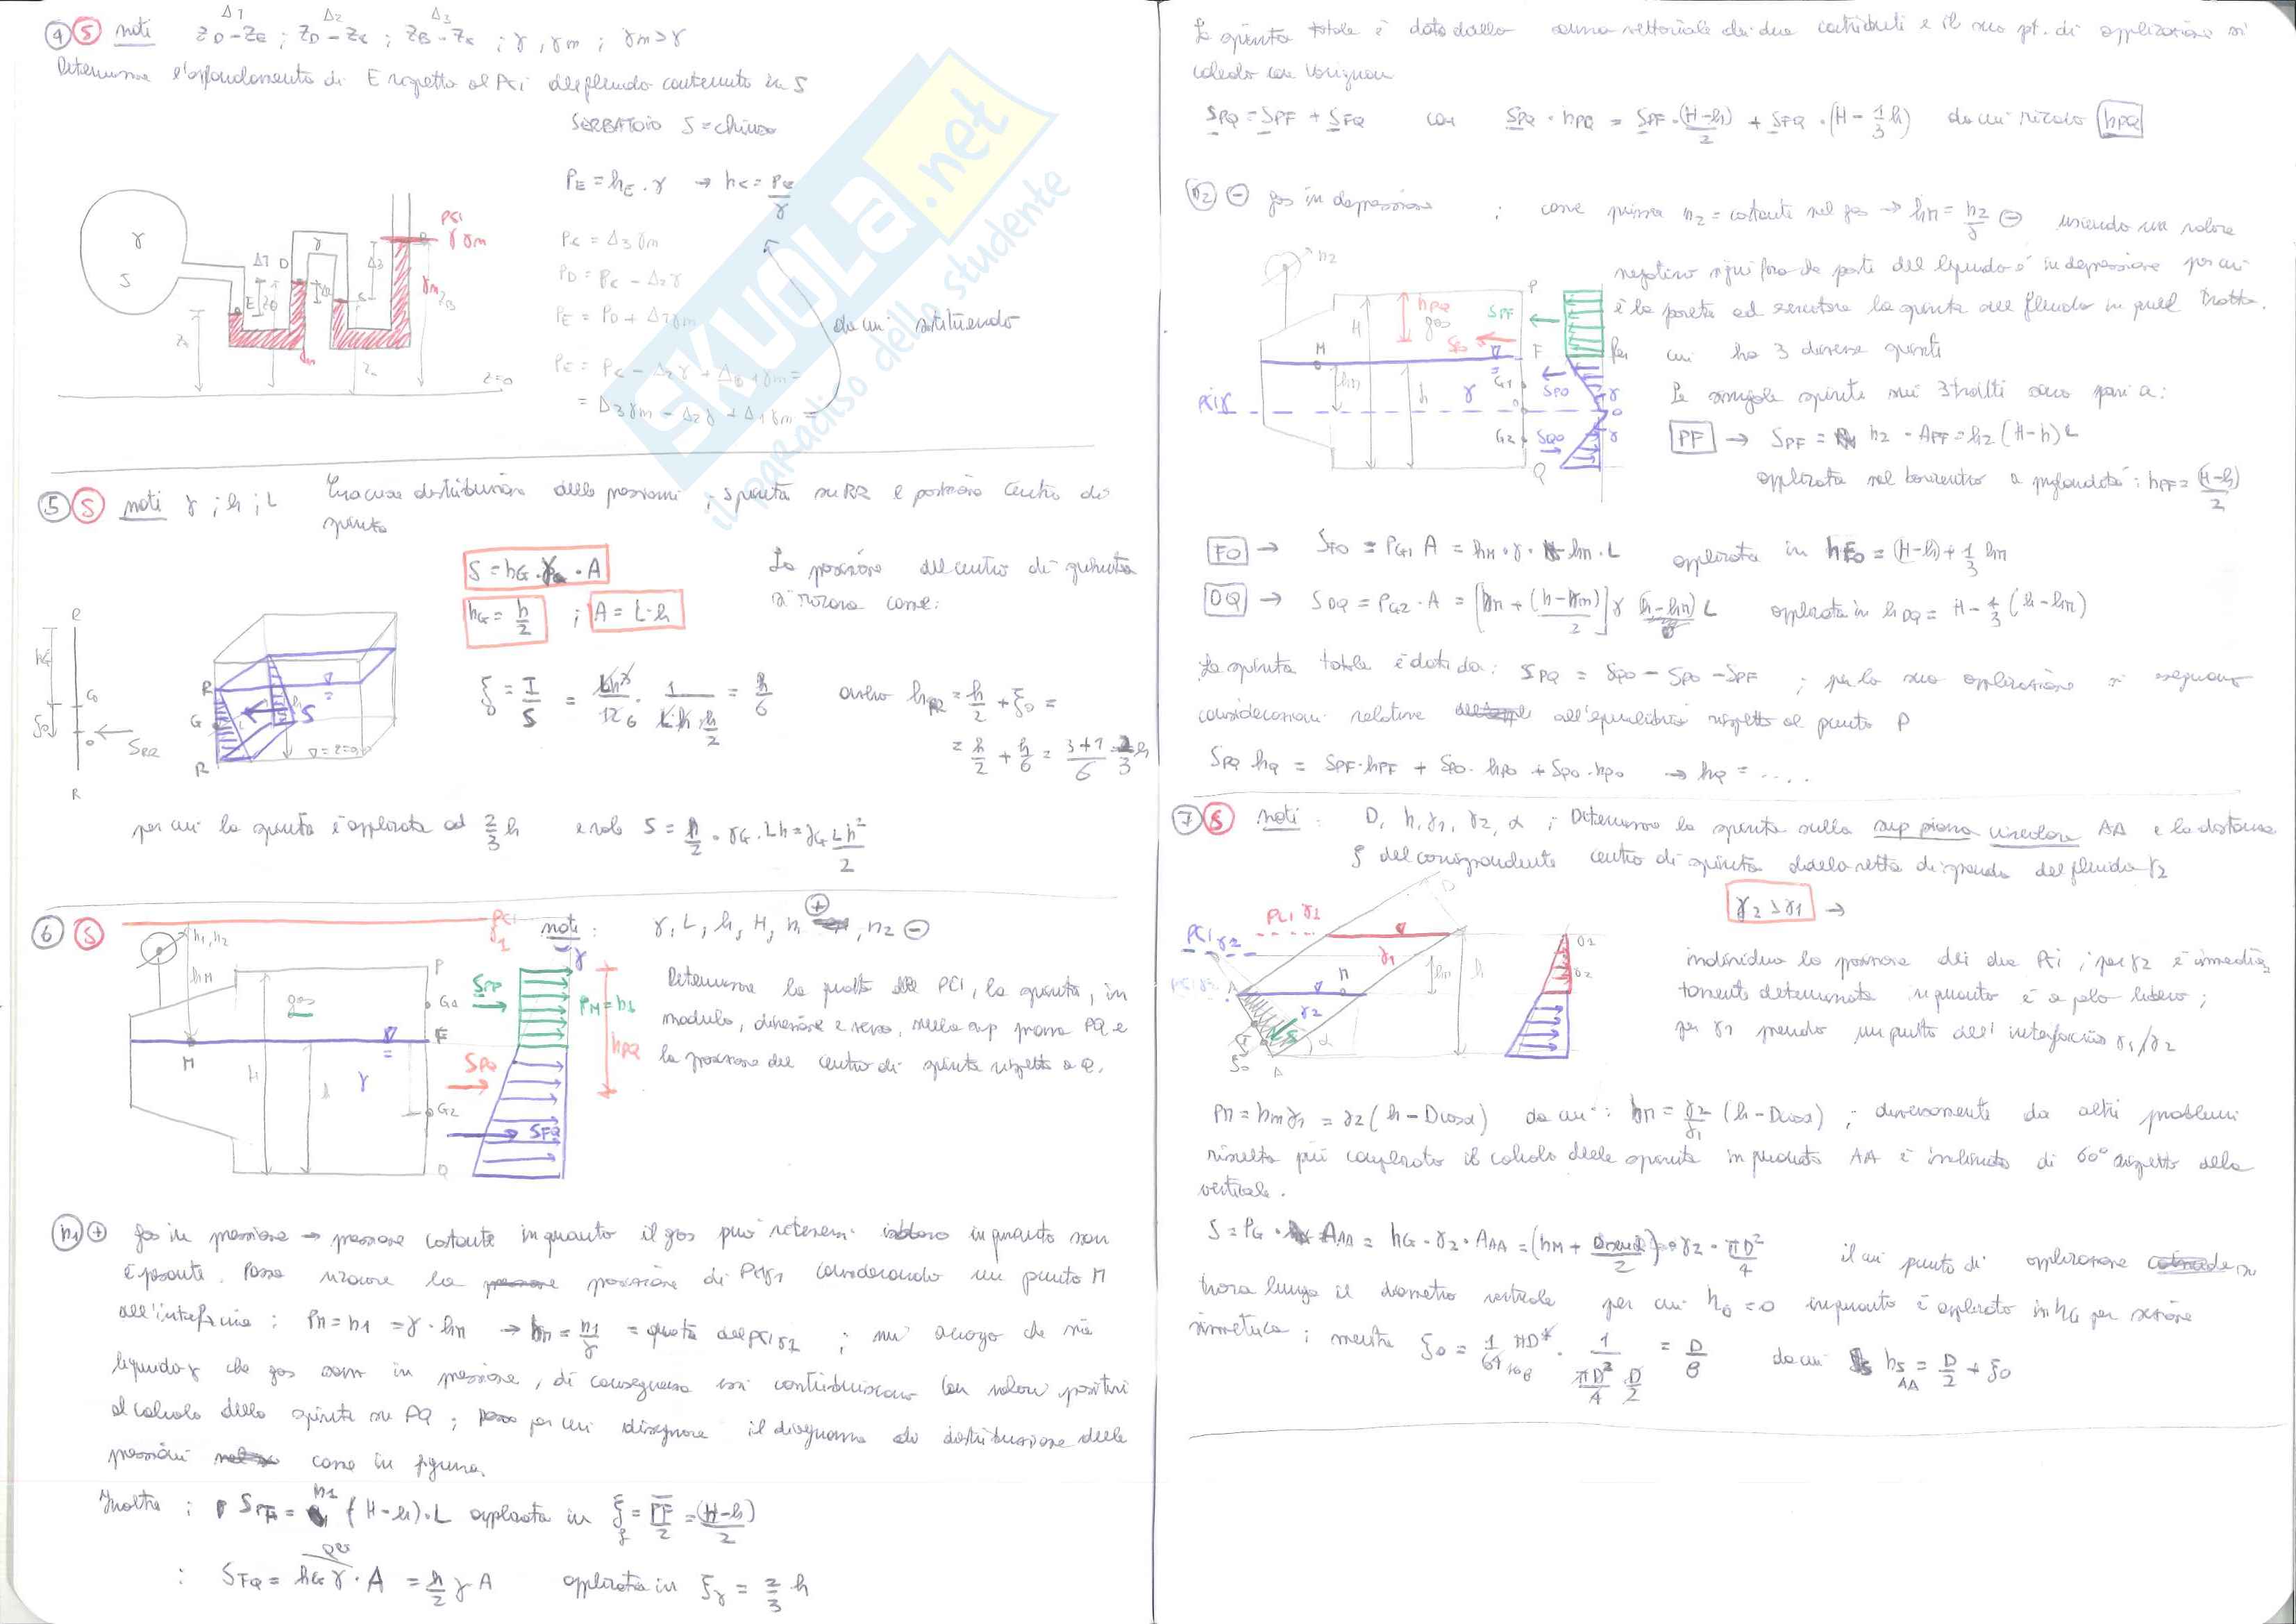 ④ Ⓢ noti Δ1 Z_D-Z_E ; Δ2 Z_D-Z_C ; Δ3 Z_B-Z_C ; γ, γm ; γm>γ
Determinare l'affondamento di E rispetto al PCi del fluido contenuto in S
SERBATOIO S = chiuso
P_E = h_E · γ → h_E = P_E/γ
P_C = Δ3 γm
P_D = P_C - Δ2 γ
P_E = P_D + Δ1 γm
da cui sostituendo
P_E = P_C - Δ2 γ + Δ1 γm =
= Δ3 γm - Δ2 γ + Δ1 γm =
γ
S
PCi γm
Z=0
SKUOLA.net
il paradiso dello studente
⑤ Ⓢ noti γ ; h ; L Tracciare distribuzione delle pressioni ; spinta su RR e posizione centro di
spinta
S = h_G · γ · A
h_G = h/2 ; A = L·h
La posizione del centro di spinta
si trova come:
ξ = I/S = Lh³/12 · 1/(L·h·h/2) = h/6 ovvero h_RR = h/2 + ξ0 =
= h/2 + h/6 = (3+1)/6 = 2/3 h
per cui la spinta è applicata ad 2/3 h e vale S = h/2 · γ_G · Lh = γ_G Lh²/2
⑥ Ⓢ noti : γ, L, h, H, n1 ⊕, n2 ⊖
Determinare la quota del PCI, la spinta, in
modulo, direzione e verso, sulla sup piana PQ e
la posizione del centro di spinta rispetto a Q.
gas
P_M = n1
S_FQ
h_PQ
n1 ⊕ gas in pressione → pressione costante in quanto il gas può ritenersi in quanto non
è pesante. Posso ricavare la posizione di PCiγ1 considerando un punto M
all'interfaccia : P_M = n1 = γ · h_M → h_M = n1/γ = quota del PCi ; mi accorgo che sia
liquido γ che gas sono in pressione, di conseguenza essi contribuiscono con valori positivi
al calcolo della spinta su PQ ; per cui disegnare il diagramma di distribuzione delle
pressioni come in figura.
Inoltre : S_PF = n1 (H-h)·L applicata in ξ = PF/2 = (H-h)/2
: S_FQ = h_G γ · A = h/2 γ A applicata in ξγ = 2/3 h
La spinta totale è data dalla somma vettoriale dei due contributi e il suo pt. di applicazione si
calcola con Varignon
S_PQ = S_PF + S_FQ con S_PQ · h_PQ = S_PF · (H-h)/2 + S_FQ · (H - 1/3 h) da cui ricavo h_PQ
n2 ⊖ gas in depressione ; come prima n2 = costante nel gas → h_M = n2/γ ⊖ uscendo un valore
negativo significa che parte del liquido è in depressione per cui
è la parete ad esercitare la spinta sul fluido in quel tratto.
Per cui ho 3 diverse spinte
Le singole spinte sui 3 tratti sono pari a:
PF → S_PF = n2 · A_PF = n2 (H-h) L
applicata nel baricentro a profondità : h_PF = (H-h)/2
FO → S_FO = P_G1 A = h_M · γ · h_M · L applicata in h_FO = (H-h) + 1/3 h_M
OQ → S_OQ = P_G2 · A = [h_M + (h-h_M)/2] γ (h-h_M) L applicata in h_OQ = H - 1/3 (h-h_M)
La spinta totale è data da : S_PQ = S_QO - S_FO - S_PF ; per la sua applicazione si eseguono
considerazioni relative all'equilibrio rispetto al punto P
S_PQ h_Q = S_PF · h_PF + S_FO · h_FO + S_QO · h_QO → h_Q = ....
⑦ Ⓢ noti : D, h, γ1, γ2, α ; Determinare la spinta sulla sup piana circolare AA e la distanza
ξ del corrispondente centro di spinta dalla retta di sponda del fluido γ2
γ2 > γ1 →
PCI γ1
PCI γ2
individuo la posizione dei due PCi ; per γ2 è immedia
tamente determinata in quanto è a pelo libero ;
per γ1 prendo un punto dell'interfaccia γ1/γ2
P_M = h_M γ1 = γ2 (h - Dcosα) da cui : h_M = γ2/γ1 (h - Dcosα) ; diversamente da altri problemi
risulta più complicato il calcolo della spinta in quanto AA è inclinato di 60° rispetto alla
verticale.
S = P_G · A_AA = h_G · γ2 · A_AA = (h_M + Dcosα/2) · γ2 · πD²/4 il cui punto di applicazione si
trova lungo il diametro verticale per cui h0 = 0 in quanto è applicato in h_G per sezione
simmetrica ; mentre ξ0 = 1/64 πD⁴ · 1/(πD²/4 · D/2) = D/8 da cui h_S AA = D/2 + ξ0